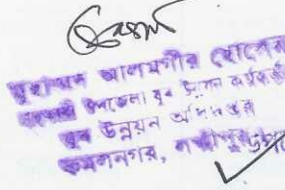 মুহাম্মদ আলমগীর হোসেন
সহকারী উপজেলা যুব উন্নয়ন কর্মকর্তা
যুব উন্নয়ন অধিদপ্তর
কমলনগর, লক্ষ্মীপুর